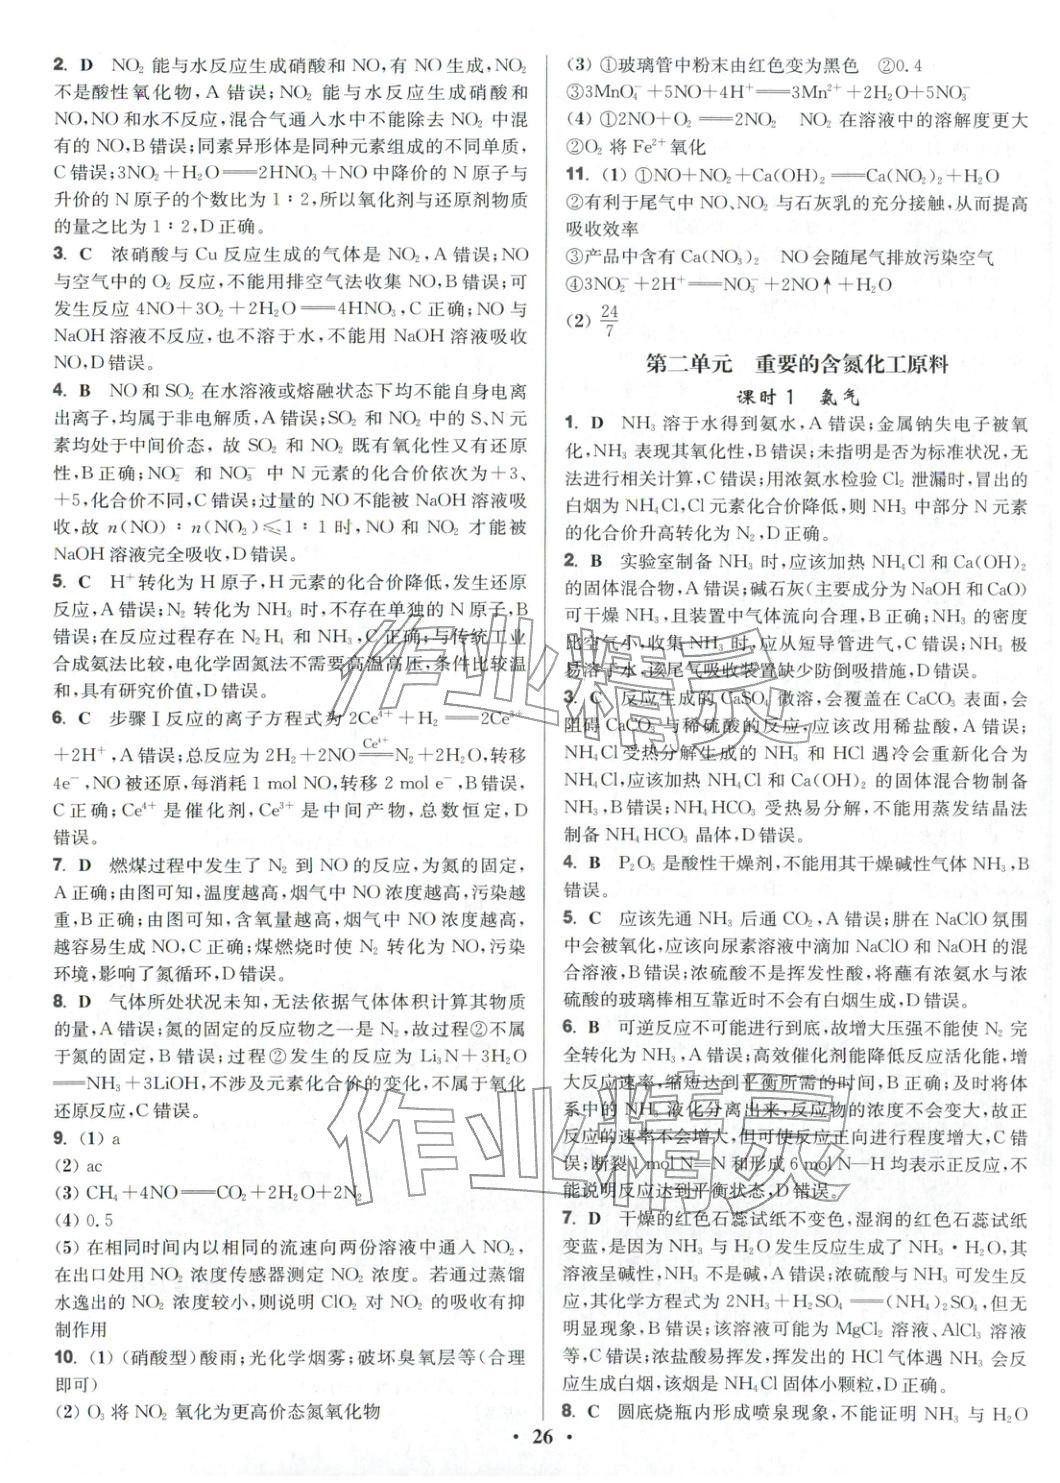 2. D NO₂ 能与水反应生成硝酸和 NO,有 NO 生成,NO₂
不是酸性氧化物,A 错误;NO₂ 能与水反应生成硝酸和
NO,NO 和水不反应,混合气通入水中不能除去 NO₂ 中混
有的 NO,B 错误;同素异形体是同种元素组成的不同单质,
C 错误;3NO₂＋H₂O══2HNO₃＋NO 中降价的 N 原子与
升价的 N 原子的个数比为 1∶2,所以氧化剂与还原剂物质
的量之比为 1∶2,D 正确。
3. C 浓硝酸与 Cu 反应生成的气体是 NO₂,A 错误;NO
与空气中的 O₂ 反应,不能用排空气法收集 NO,B 错误;可
发生反应 4NO＋3O₂＋2H₂O══4HNO₃,C 正确;NO 与
NaOH 溶液不反应,也不溶于水,不能用 NaOH 溶液吸收
NO,D 错误。
4. B NO 和 SO₂ 在水溶液或熔融状态下均不能自身电离
出离子,均属于非电解质,A 错误;SO₂ 和 NO₂ 中的 S、N 元
素均处于中间价态，故 SO₂ 和 NO₂ 既有氧化性又有还原
性,B 正确;NO₂⁻ 和 NO₃⁻ 中 N 元素的化合价依次为＋3、
＋5,化合价不同,C 错误;过量的 NO 不能被 NaOH 溶液吸
收,故 n(NO)∶n(NO₂)≤1∶1 时,NO 和 NO₂ 才能被
NaOH 溶液完全吸收,D 错误。
5. C H⁺转化为 H 原子,H 元素的化合价降低,发生还原
反应,A 错误;N₂ 转化为 NH₃ 时,不存在单独的 N 原子,B
错误;在反应过程存在 N₂H₄ 和 NH₃,C 正确;与传统工业
合成氨法比较,电化学固氮法不需要高温高压,条件比较温
和,具有研究价值,D 错误。
6. C 步骤Ⅰ反应的离子方程式为 2Ce⁴⁺＋H₂══2Ce³⁺
＋2H⁺,A 错误;总反应为 2H₂＋2NO══(Ce⁴⁺)N₂＋2H₂O,转移
4e⁻,NO 被还原,每消耗 1 mol NO,转移 2 mol e⁻,B 错误,
C 正确;Ce⁴⁺是催化剂,Ce³⁺是中间产物,总数恒定,D
错误。
7. D 燃煤过程中发生了 N₂ 到 NO 的反应,为氮的固定,
A 正确;由图可知,温度越高,烟气中 NO 浓度越高,污染越
重,B 正确;由图可知,含氧量越高,烟气中 NO 浓度越高,
越容易生成 NO,C 正确;煤燃烧时使 N₂ 转化为 NO,污染
环境,影响了氮循环,D 错误。
8. D 气体所处状况未知,无法依据气体体积计算其物质
的量,A 错误;氮的固定的反应物之一是 N₂,故过程②不属
于氮的固定,B 错误;过程②发生的反应为 Li₃N＋3H₂O
══NH₃＋3LiOH,不涉及元素化合价的变化,不属于氧化
还原反应,C 错误。
9. (1) a
(2) ac
(3) CH₄＋4NO══CO₂＋2H₂O＋2N₂
(4) 0.5
(5) 在相同时间内以相同的流速向两份溶液中通入 NO₂,
在出口处用 NO₂ 浓度传感器测定 NO₂ 浓度。若通过蒸馏
水逸出的 NO₂ 浓度较小,则说明 ClO₂ 对 NO₂ 的吸收有抑
制作用
10. (1) (硝酸型)酸雨;光化学烟雾;破坏臭氧层等(合理
即可)
(2) O₃ 将 NO₂ 氧化为更高价态氮氧化物
(3) ①玻璃管中粉末由红色变为黑色 ②0.4
③3MnO₄⁻＋5NO＋4H⁺══3Mn²⁺＋2H₂O＋5NO₃⁻
(4) ①2NO＋O₂══2NO₂ NO₂ 在溶液中的溶解度更大
②O₂ 将 Fe²⁺氧化
11. (1) ①NO＋NO₂＋Ca(OH)₂══Ca(NO₂)₂＋H₂O
②有利于尾气中 NO、NO₂ 与石灰乳的充分接触,从而提高
吸收效率
③产品中含有 Ca(NO₃)₂ NO 会随尾气排放污染空气
④3NO₂⁻＋2H⁺══NO₃⁻＋2NO↑＋H₂O
(2) 24/7
第二单元 重要的含氮化工原料
课时 1 氨气
1. D NH₃ 溶于水得到氨水,A 错误;金属钠失电子被氧
化,NH₃ 表现其氧化性,B 错误;未指明是否为标准状况,无
法进行相关计算,C 错误;用浓氨水检验 Cl₂ 泄漏时,冒出的
白烟为 NH₄Cl,Cl 元素化合价降低,则 NH₃ 中部分 N 元素
的化合价升高转化为 N₂,D 正确。
2. B 实验室制备 NH₃ 时,应该加热 NH₄Cl 和 Ca(OH)₂
的固体混合物,A 错误;碱石灰(主要成分为 NaOH 和 CaO)
可干燥 NH₃,且装置中气体流向合理,B 正确;NH₃ 的密度
比空气小,收集 NH₃ 时,应从短导管进气,C 错误;NH₃ 极
易溶于水,该尾气吸收装置缺少防倒吸措施,D 错误。
3. C 反应生成的 CaSO₄ 微溶,会覆盖在 CaCO₃ 表面,会
阻碍 CaCO₃ 与稀硫酸的反应,应该改用稀盐酸,A 错误;
NH₄Cl 受热分解生成的 NH₃ 和 HCl 遇冷会重新化合为
NH₄Cl,应该加热 NH₄Cl 和 Ca(OH)₂ 的固体混合物制备
NH₃,B 错误;NH₄HCO₃ 受热易分解,不能用蒸发结晶法
制备 NH₄HCO₃ 晶体,D 错误。
4. B P₂O₅ 是酸性干燥剂,不能用其干燥碱性气体 NH₃,B
错误。
5. C 应该先通 NH₃ 后通 CO₂,A 错误;肼在 NaClO 氛围
中会被氧化,应该向尿素溶液中滴加 NaClO 和 NaOH 的混
合溶液,B 错误;浓硫酸不是挥发性酸,将蘸有浓氨水与浓
硫酸的玻璃棒相互靠近时不会有白烟生成,D 错误。
6. B 可逆反应不可能进行到底,故增大压强不能使 N₂ 完
全转化为 NH₃,A 错误;高效催化剂能降低反应活化能,增
大反应速率,缩短达到平衡所需的时间,B 正确;及时将体
系中的 NH₃ 液化分离出来,反应物的浓度不会变大,故正
反应的速率不会增大,但可使反应正向进行程度增大,C 错
误;断裂 1 mol N≡N 和形成 6 mol N—H 均表示正反应,不
能说明反应达到平衡状态,D 错误。
7. D 干燥的红色石蕊试纸不变色,湿润的红色石蕊试纸
变蓝,是因为 NH₃ 与 H₂O 发生反应生成了 NH₃·H₂O,其
溶液呈碱性,NH₃ 不是碱,A 错误;浓硫酸与 NH₃ 可发生反
应,其化学方程式为 2NH₃＋H₂SO₄══(NH₄)₂SO₄,但无
明显现象,B 错误;该溶液可能为 MgCl₂ 溶液、AlCl₃ 溶液
等,C 错误;浓盐酸易挥发,挥发出的 HCl 气体遇 NH₃ 会反
应生成白烟,该烟是 NH₄Cl 固体小颗粒,D 正确。
8. C 圆底烧瓶内形成喷泉现象,不能证明 NH₃ 与 H₂O
• 26 •
作业精灵
作业精灵